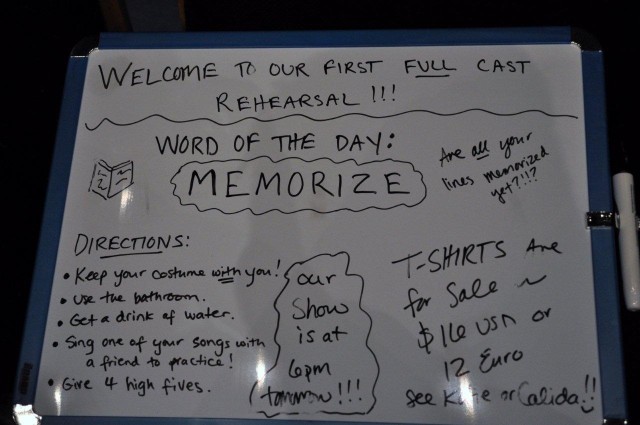 WELCOME TO OUR FIRST FULL CAST
REHEARSAL !!!
WORD OF THE DAY:
MEMORIZE
Are all your
lines memorized
yet?!!?
DIRECTIONS:
• Keep your costume with you!
• Use the bathroom.
• Get a drink of water.
• Sing one of your songs with
a friend to practice!
• Give 4 high fives.
our
Show
is at
6pm
tomorrow!!!
T-SHIRTS Are
for Sale ~
$16 USD or
12 Euro
See Katie or Calida!!